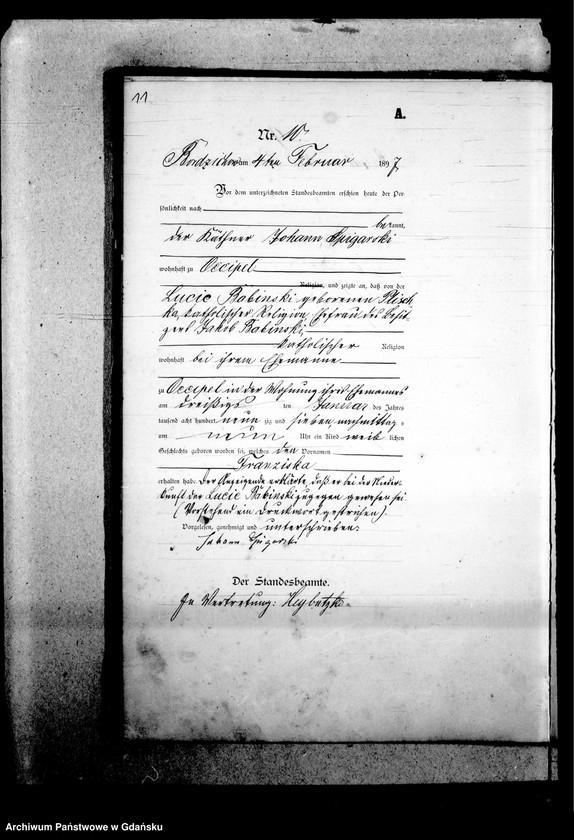 11
A.
Nr. 10.
Bordzichow am 4ten Februar 1897
Vor dem unterzeichneten Standesbeamten erschien heute der Per-
sönlichkeit nach
bekannt,
der Käthner Johann Spigarski
wohnhaft zu Occipel
Religion, und zeigte an, daß von der
Lucie Babinski geborenen Plisch
ka, katholischer Religion, Ehefrau des Besit-
zers Jakob Babinski,
katholischer Religion
wohnhaft bei ihrem Ehemanne
zu Occipel in der Wohnung ihres Ehemannes
am dreißigs ten Januar des Jahres
tausend acht hundert neun zig und sieben, nachmittag s
um neun Uhr ein Kind weib lichen
Geschlechts geboren worden sei, welches den Vornamen
Franziska
erhalten habe. Der Anzeigende erklärte, daß er bei der Nieder-
kunft der Lucie Babinski zugegen gewesen sei
(Vorstehend ein Druckwort gestrichen).
Vorgelesen, genehmigt und unterschrieben:
Johann
Der Standesbeamte.
In Vertretung:
Archiwum Państwowe w Gdańsku